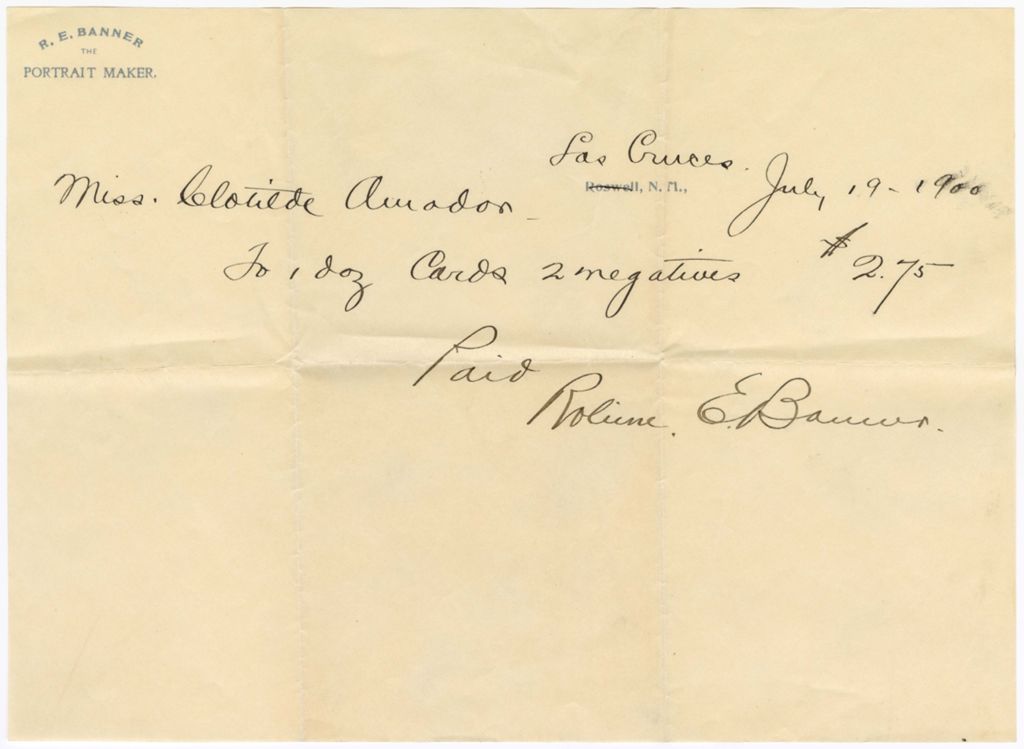 R. E. BANNER
THE
PORTRAIT MAKER.
Las Cruces.
Roswell, N. M., July 19 - 1900
Miss. Clotilde Amador -
To 1 doz Cards 2 negatives $2.75
Paid
E. Banner.